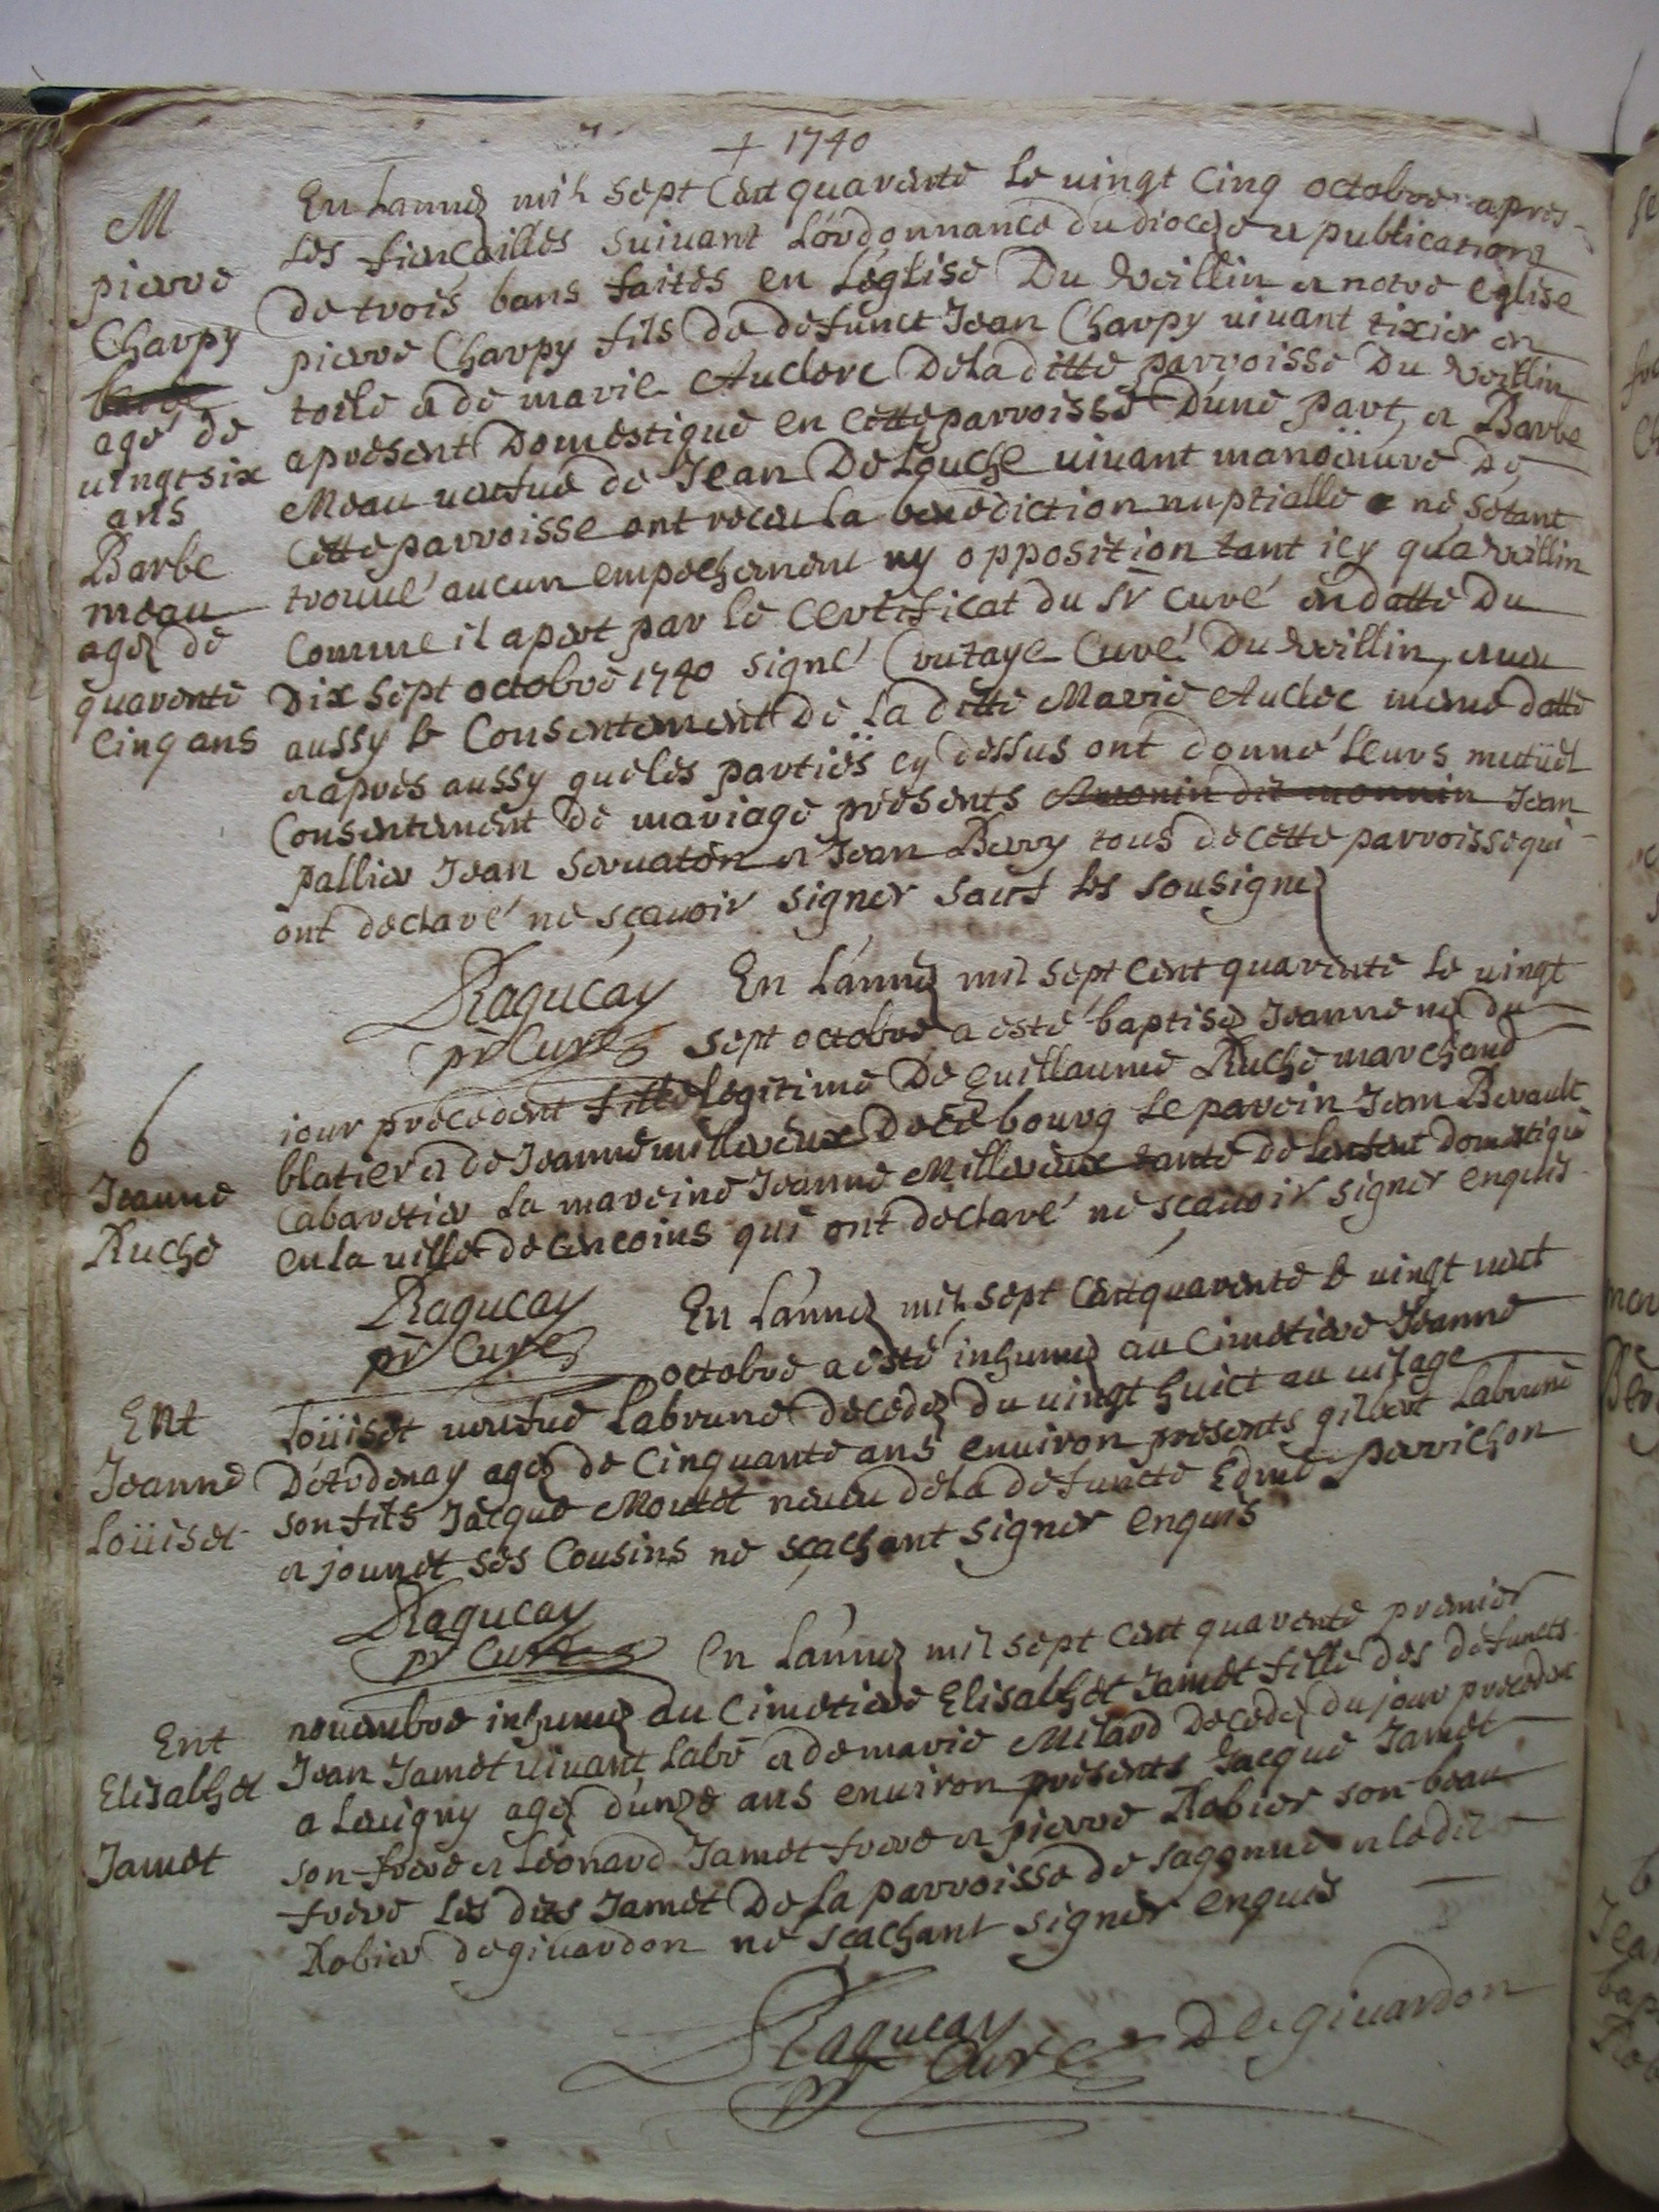 + 1740
M
pierre
Charpy
agé de
uingt six
ans
Barbe
meau
ageé de
quarente
cinq ans
En Lannée mil sept Cent quarente Le uingt cinq octobre apres
Les fiencailles suiuant L'ordonnance du diocese et publications
De trois bans faites en Léglise Du Veillin et notre eglise
pierre Charpy fils de defunct Jean Charpy uiuant tixier en
toile et de marie Auclerc De La ditte parroisse Du Veillin
apresent Domestique en cette parroisse D'une part, et Barbe
Meau ueufue de Jean Delouche uiuant manoeuure de
Cette parroisse ont receu La benediction nuptialle ne sétant
trouué aucun empechement ny opposition tant icy qu'a Veillin
Comme il apert par Le Certificat du Sr curé en datte Du
Dix sept octobre 1740 signé Curé Du Veillin, et ueu
aussy le Consentement De La ditte Marie Auclec meme datte
et apres aussy que les parties cy dessus ont donné Leurs mutüel
Consentement De mariage presents Jean
pallier Jean Seruaton et Jean Berry tous de cette parroisse qui
ont declaré ne sçauoir signer sauf Les sousignez
Ragucay
pr Curé
b
Jeanne
Ruche
En Lannée mil sept cent quarente Le uingt
sept octobre a esté baptisée Jeanne née du
iour precedent fille Legitime De guillaume Ruche marchand
blatier et de Jeanne millerieux De ce bourg Le parein Jean Berault
Cabaretier La mareine Jeanne Millerieux tante de Lenfent Domestique
en La uille de Cencoins qui ont declaré ne sçauoir signer enquis
Ragucay
pr Curé
Ent
Jeanne
Loüiset
En Lannée mil sept Cent quarente le uingt neuf
octobre a esté inhumée au Cimetiere Jeanne
Loüiset ueufue Labrune decedée Du uingt huict au uilage
D'etrdenay ageé de Cinquante ans enuiron presents gilbert Labrune
son fils Jacque Moutet neueu de La defuncte Edme perrichon
et jounet ses Cousins ne sçachant signer enquis
Ragucay
pr Curé
Ent
Elisabhet
Jamet
En Lannée mil sept cent quarente premier
nouembre inhumée au Cimetiere Elisabhet Jamet fille des defuncts
Jean Jamet uiuant Labr et de marie Milard Decedée du jour precedent
a Leuigny ageé d'unze ans enuiron presents Jacque Jamet
son frere et Léonard Jamet frere et pierre Robier son beau
frere Les dits Jamet De La parroisse de sagonne et Le dit
Robier de giuardon ne sçachant signer enquis
Ragucay
pr Curé De giuardon